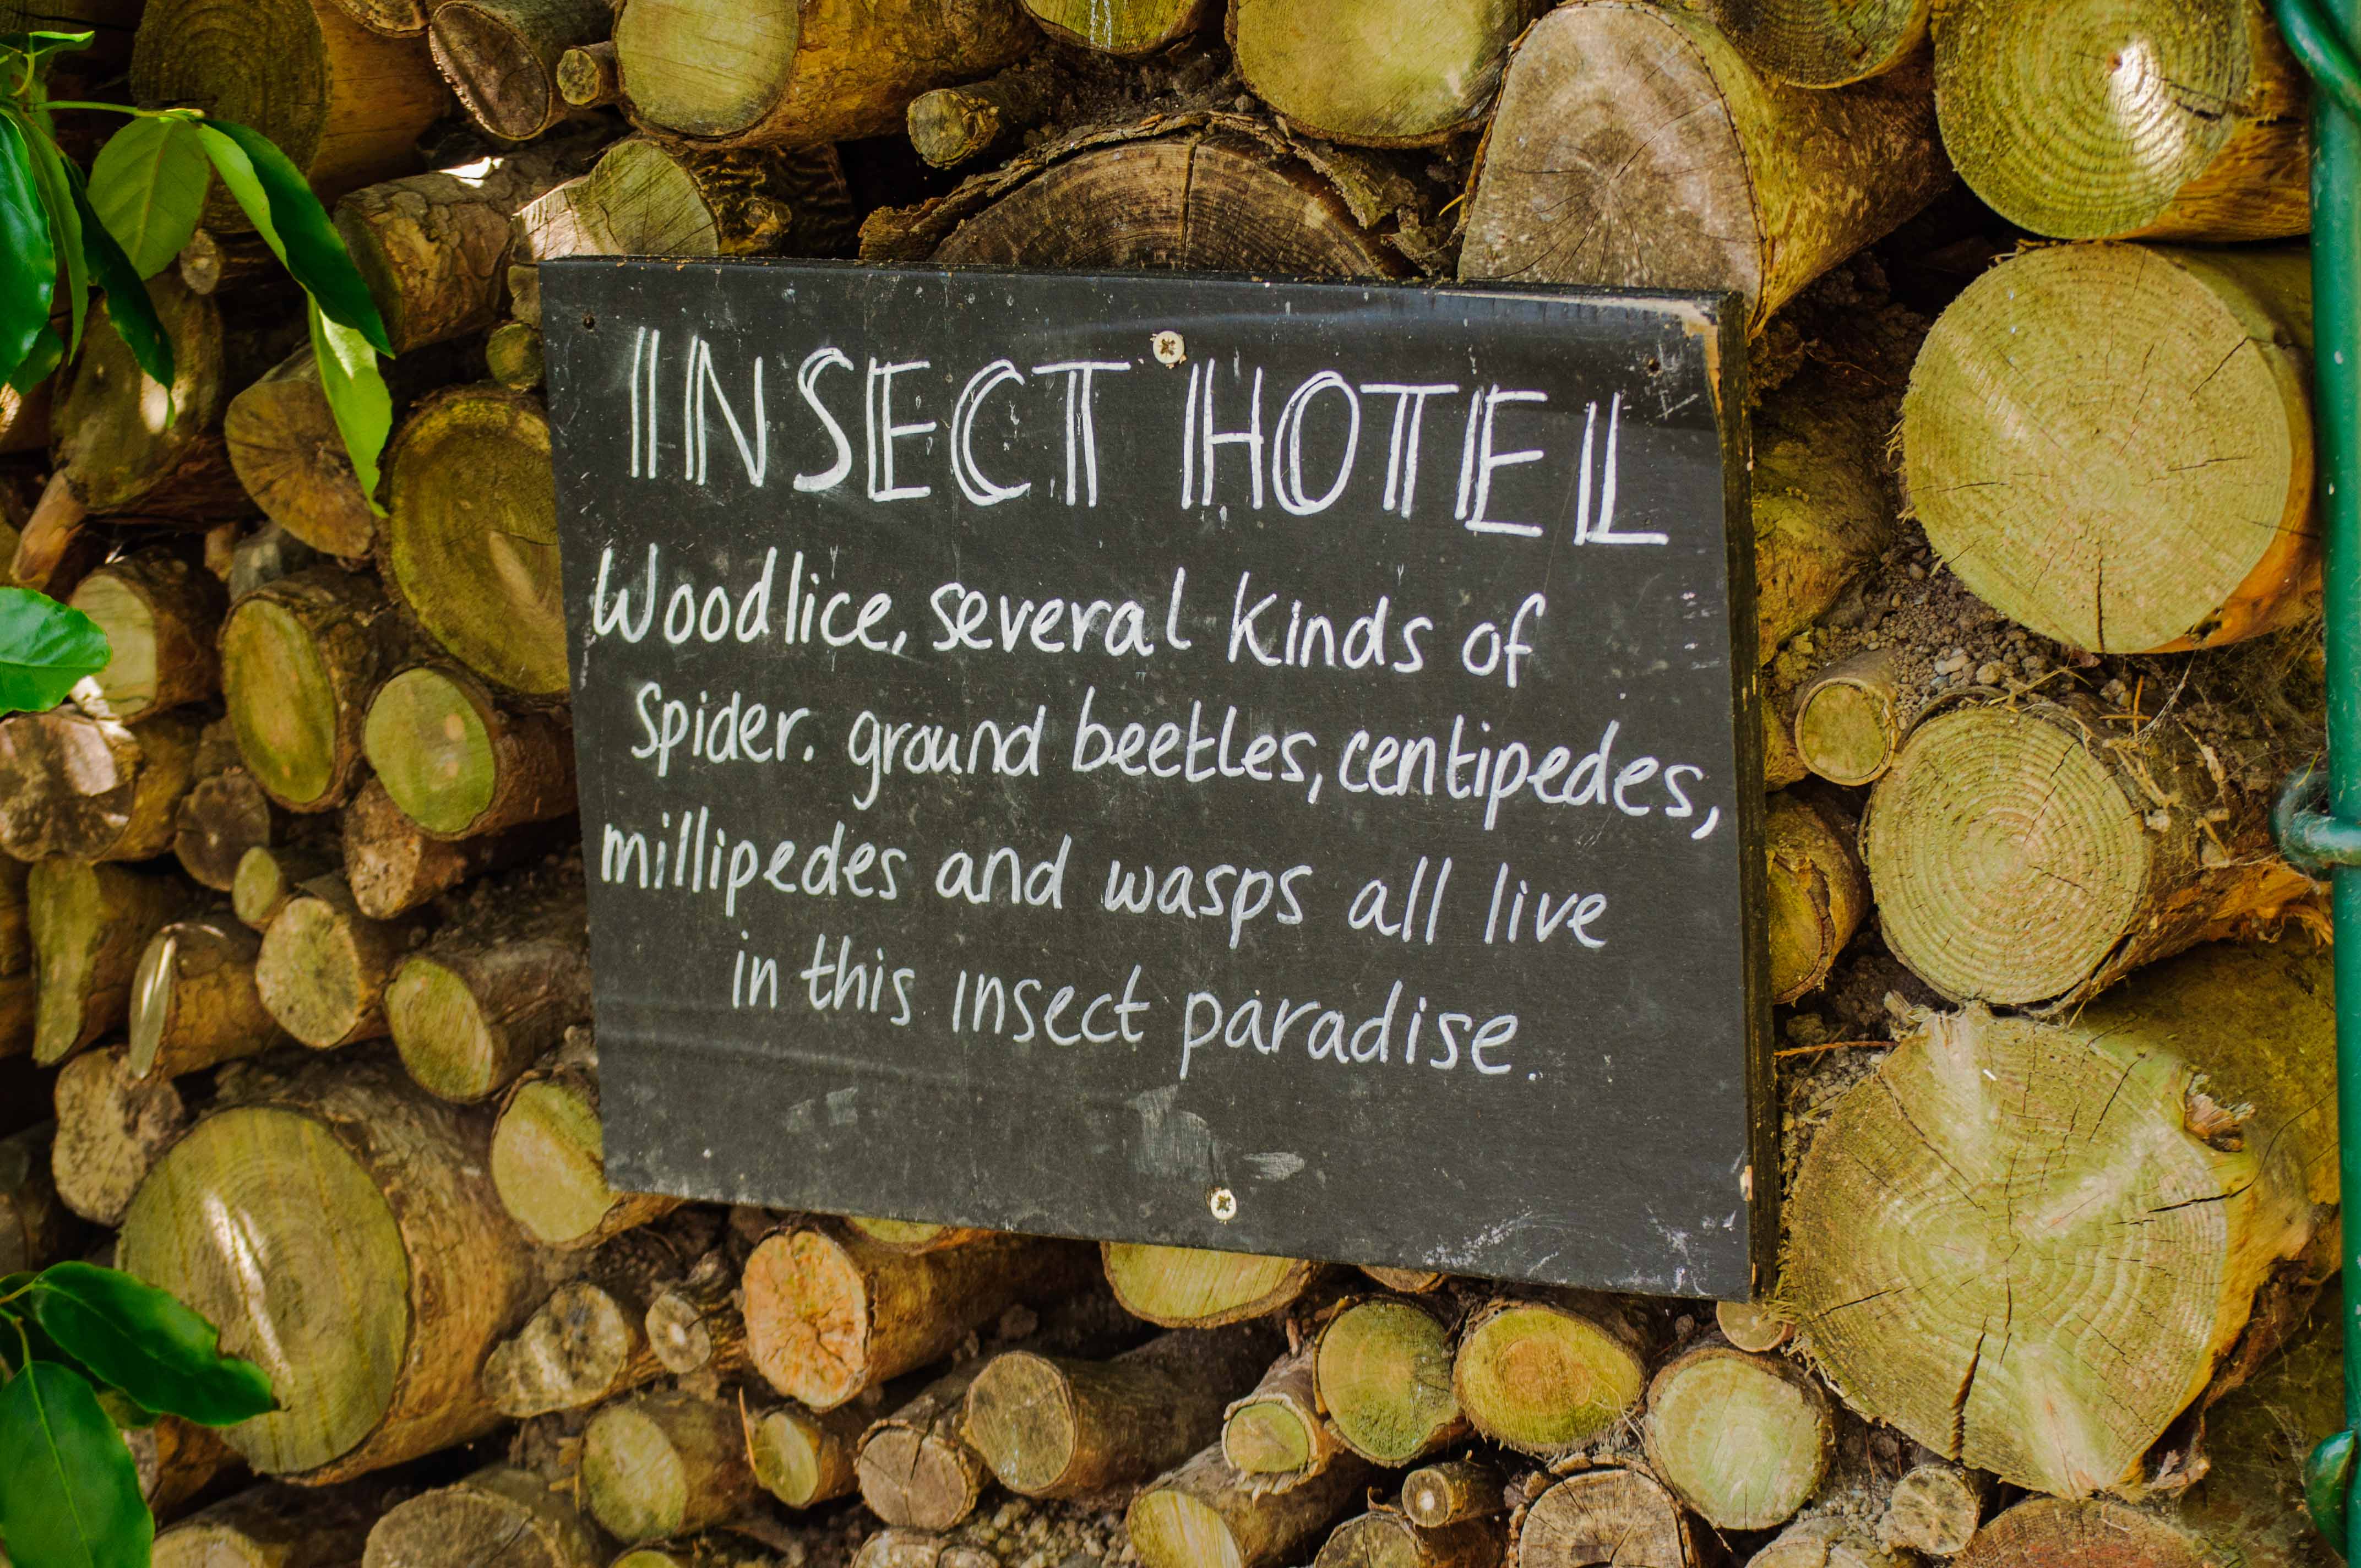 INSECT HOTEL
Woodlice, several kinds of
spider. ground beetles, centipedes,
millipedes and wasps all live
in this insect paradise.